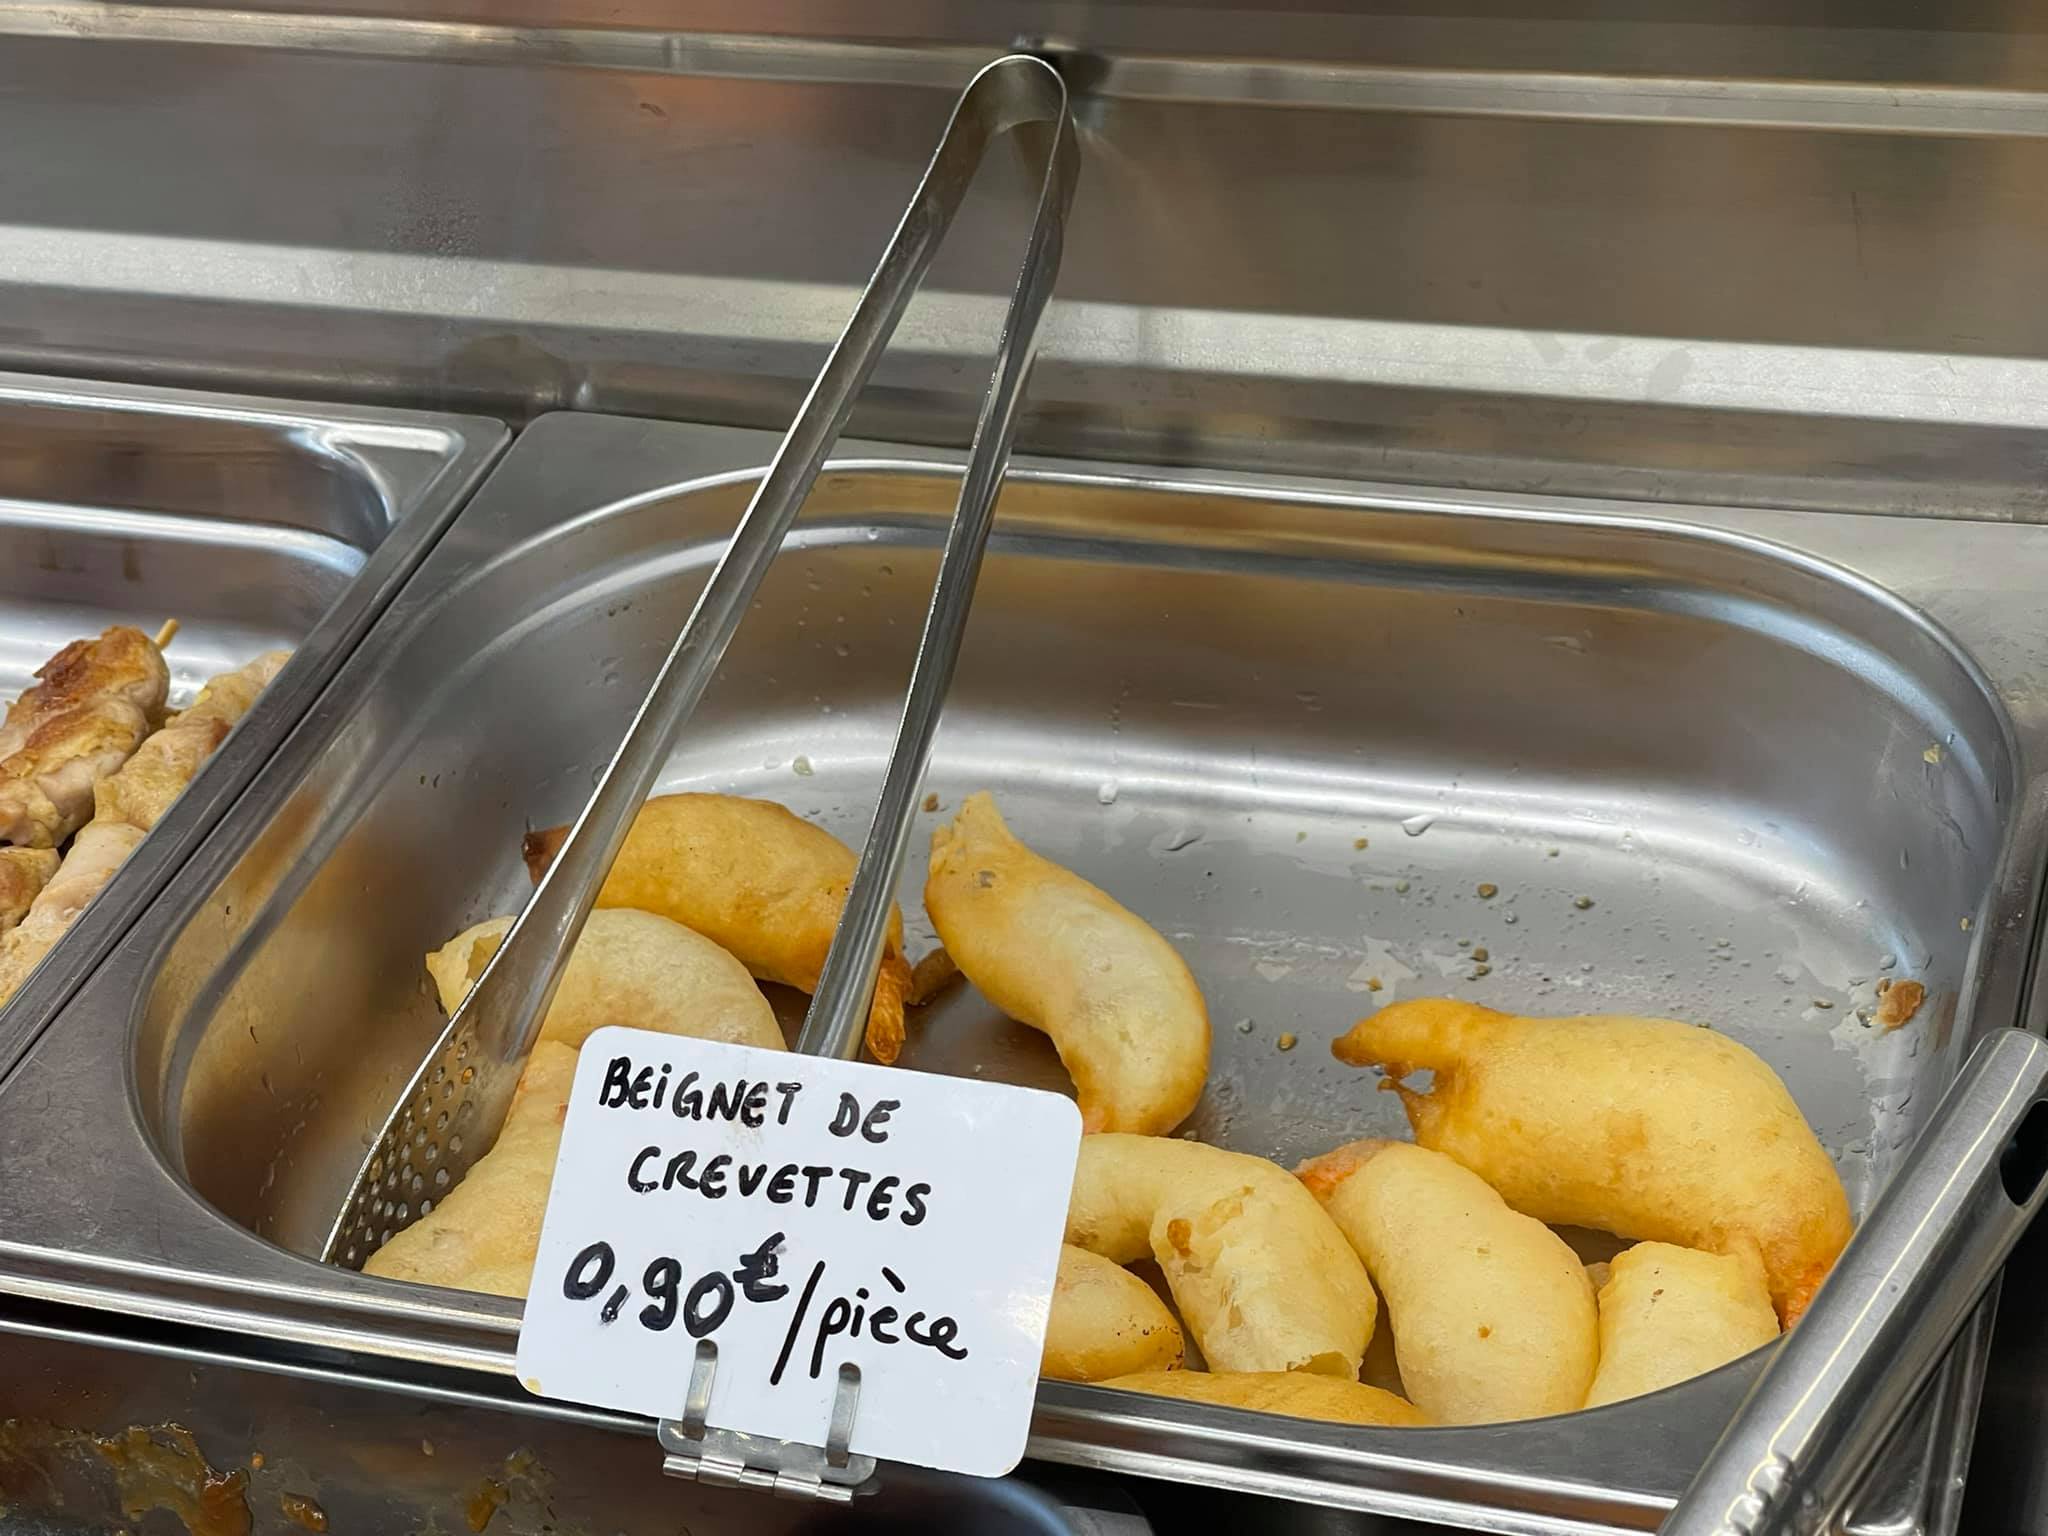 BEIGNET DE
CREVETTES
0,90€/pièce